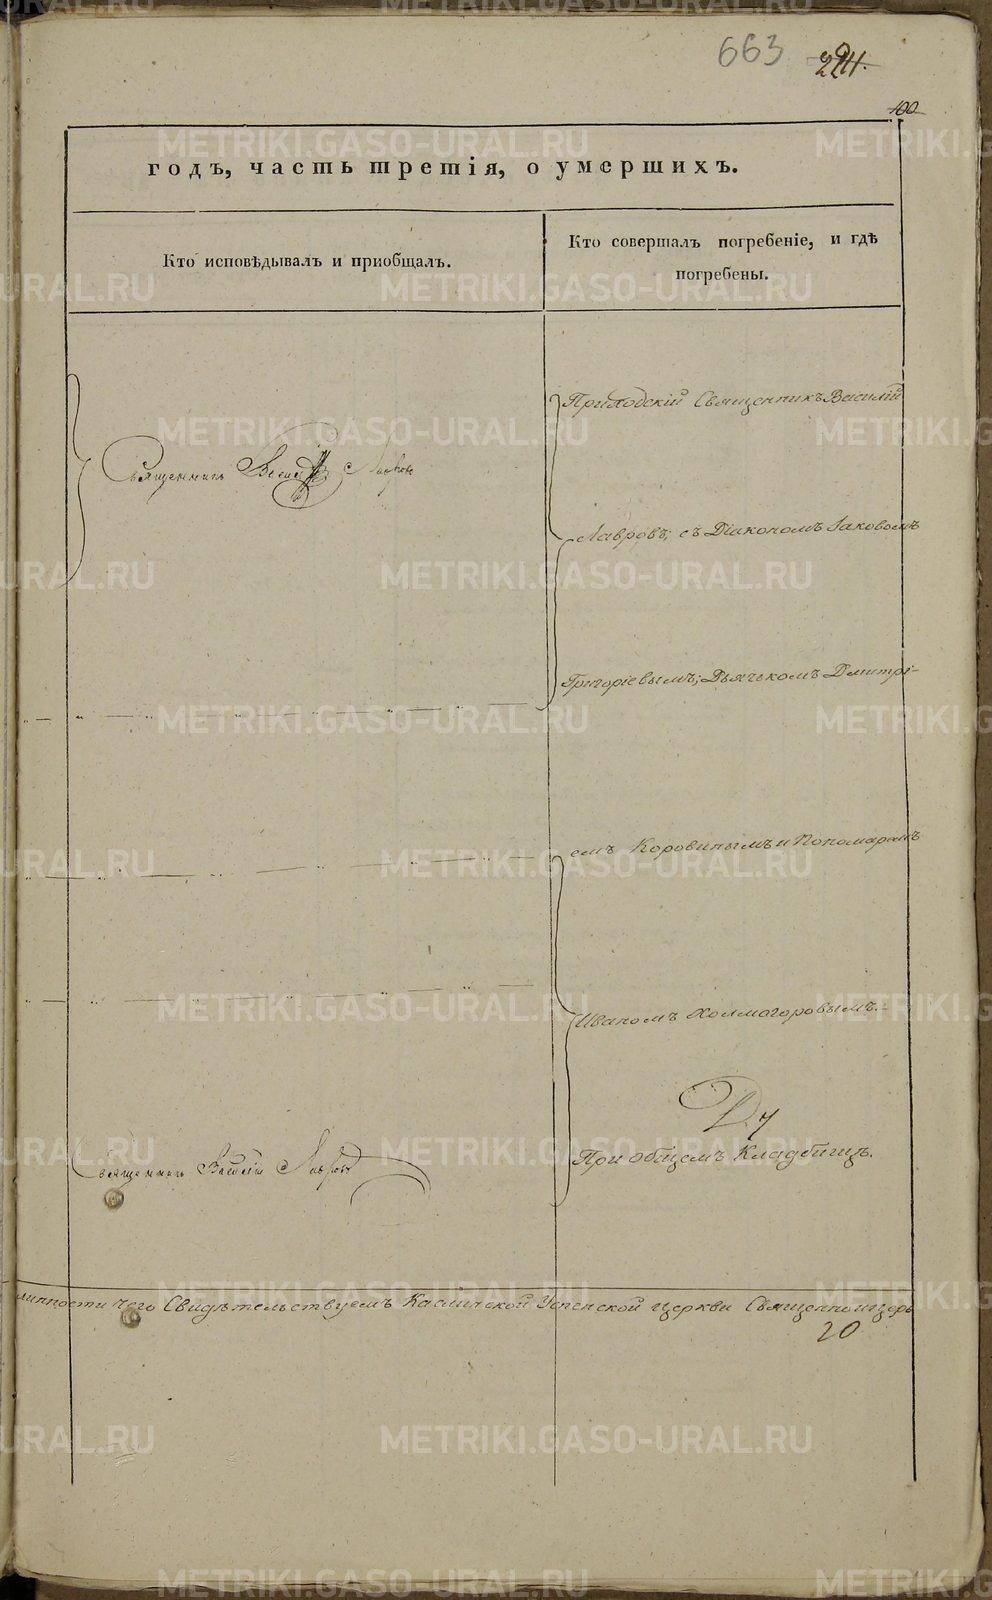 663
100
годъ, часть третія, о умершихъ.
Кто исповѣдывалъ и приобщалъ.
Кто совершалъ погребеніе, и гдѣ
погребены.
Приходскій Священникъ Василій
Священникъ Василій Лавровъ
Лавровъ, съ Діакономъ Іаковомъ
Григоріевымъ; Дьячькомъ Дмитрі-
емъ Коровинымъ и Пономаремъ
Иваномъ Холмогоровымъ.
При общемъ Кладбищѣ.
Священникъ Василій Лавровъ
чего Свидѣтельствуемъ Успенской церкви Священно
20
METRIKI.GASO-URAL.RU